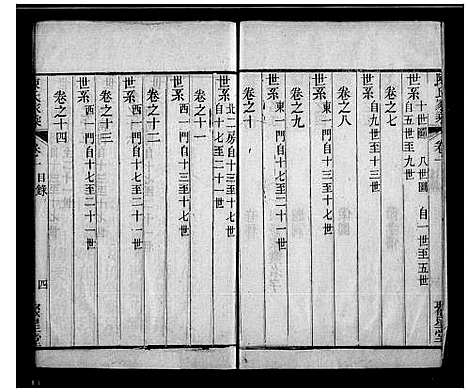 十世圖 八世圖 自一世至五世
自五世至九世
卷之七
世系 自九世至十三世
卷之八
世系 東一門自十三至十七世
卷之九
世系 東一門自十七至二十一世
卷之十
世系 北二房自十三至十七世
自十七至二十一世
卷之十一
世系 西一門自十三至十七世
卷之十二
世系 西一門自十七至二十一世
卷之十三
世系 西一門自十七至二十一世
卷之十四
目錄
四